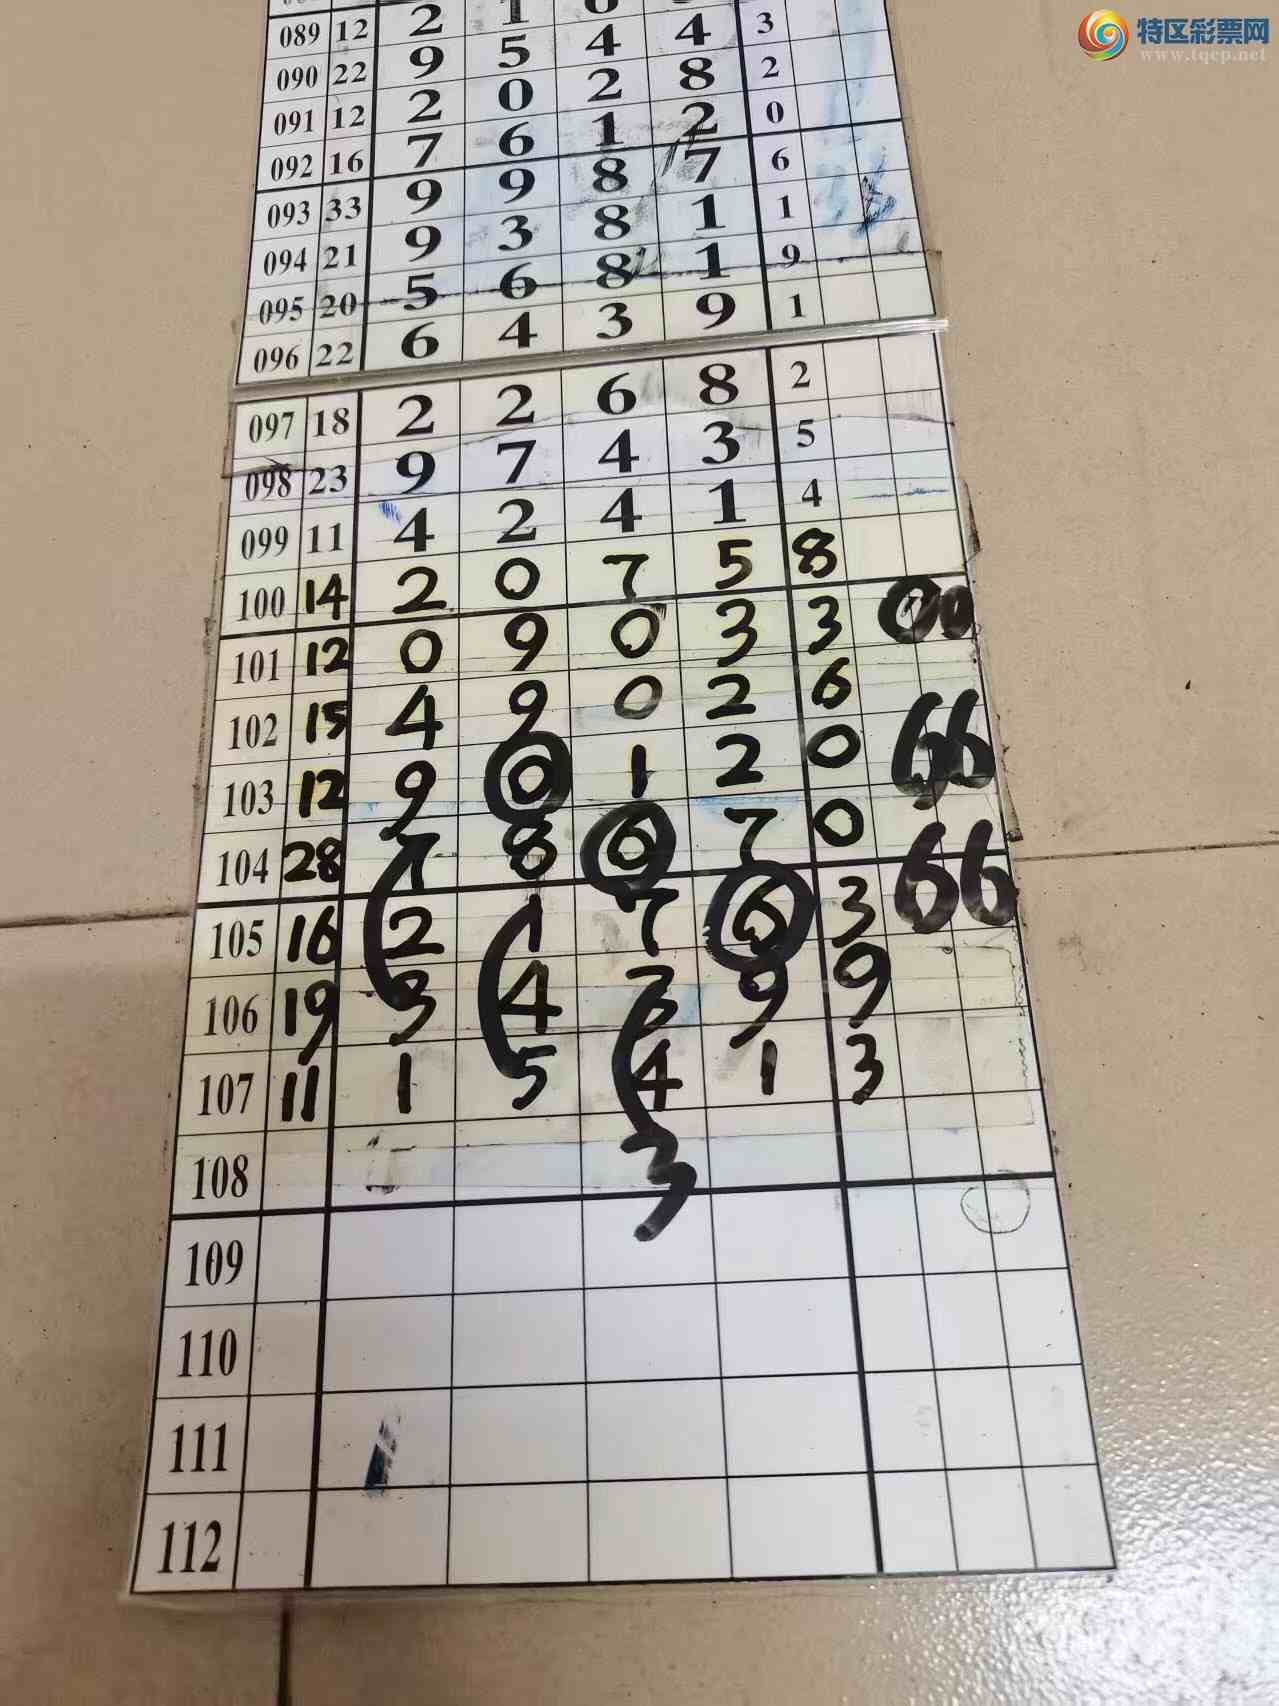 特区彩票网
www.tqcp.net
089 12 2 1
090 22 9 5 4 4 3
091 12 2 0 2 8 2
092 16 7 6 1 2 0
093 33 9 9 8 7 6
094 21 9 3 8 1 1
095 20 5 6 8 1 9
096 22 6 4 3 9 1
097 18 2 2 6 8 2
098 23 9 7 4 3 5
099 11 4 2 4 1 4
100 14 2 0 7 5 8
101 12 0 9 0 3 3 00
102 15 4 9 0 2 6
103 12 9 0 1 2 0 66
104 28 7 8 6 7 0
105 16 2 1 7 6 3 66
106 19 3 4 3 9 9
107 11 1 5 4 1 3
108 3
109
110
111
112